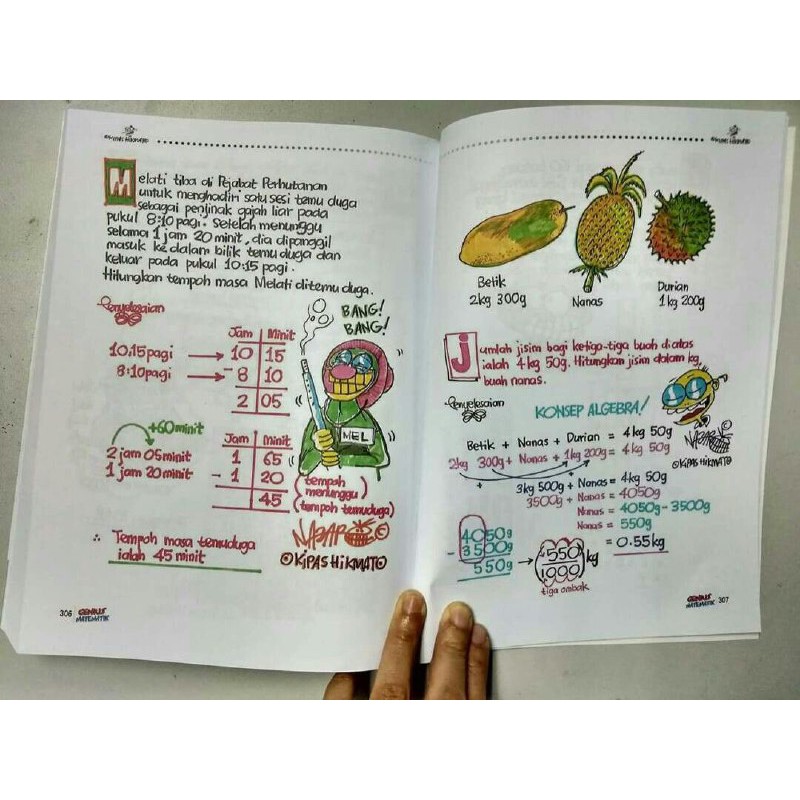 Melati tiba di Pejabat Perhutanan
untuk menghadiri satu sesi temu duga
sebagai penjinak gajah liar pada
pukul 8:10 pagi. Setelah menunggu
selama 1 jam 20 minit, dia dipanggil
masuk ke dalam bilik temu duga dan
keluar pada pukul 10:15 pagi.
Hitungkan tempoh masa Melati ditemu duga.
Penyelesaian
BANG!
BANG!
Jam Minit
10:15 pagi → 10 15
8:10 pagi → - 8 10
2 05
MEL
+60 minit
Jam Minit
2 jam 05 minit 1 65
1 jam 20 minit - 1 20 (tempoh menunggu)
45 (tempoh temuduga)
∴ Tempoh masa temuduga
ialah 45 minit
NAZAR ©
©KIPASHIKMATO
306 GENIUS
MATEMATIK
Betik
2kg 300g
Nanas
Durian
1kg 200g
Jumlah jisim bagi ketiga-tiga buah di atas
ialah 4kg 50g. Hitungkan jisim dalam kg,
buah nanas.
Penyelesaian
KONSEP ALGEBRA!
Betik + Nanas + Durian = 4kg 50g
2kg 300g + Nanas + 1kg 200g = 4kg 50g
+ 3kg 500g + Nanas = 4kg 50g
3500g + Nanas = 4050g
Nanas = 4050g - 3500g
Nanas = 550g
= 0.55kg
NAZAR
©KIPASHIKMATO
4050g
- 3500g
550g → (550/999) kg
tiga ombak
GENIUS
MATEMATIK 307